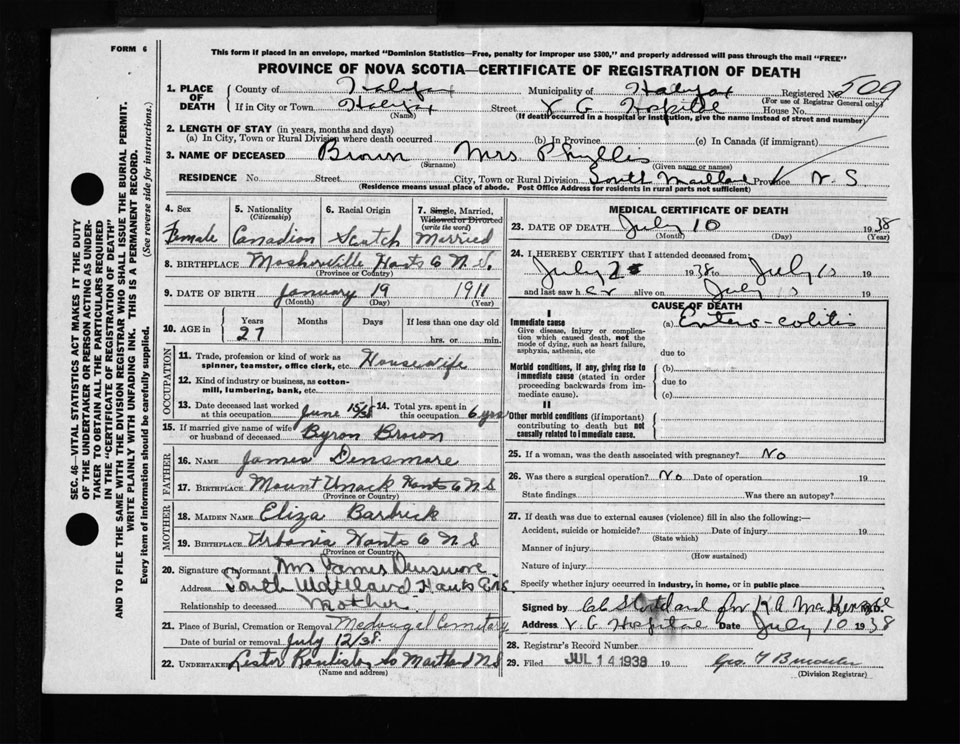 FORM 6
This form if placed in an envelope, marked "Dominion Statistics—Free, penalty for improper use $300," and properly addressed will pass through the mail "FREE"
PROVINCE OF NOVA SCOTIA—CERTIFICATE OF REGISTRATION OF DEATH
SEC. 46—VITAL STATISTICS ACT MAKES IT THE DUTY
OF THE UNDERTAKER OR PERSON ACTING AS UNDER-
TAKER TO OBTAIN ALL THE PARTICULARS REQUIRED
IN THE "CERTIFICATE OF REGISTRATION OF DEATH"
AND TO FILE THE SAME WITH THE DIVISION REGISTRAR WHO SHALL ISSUE THE BURIAL PERMIT.
WRITE PLAINLY WITH UNFADING INK. THIS IS A PERMANENT RECORD.
Every item of information should be carefully supplied. (See reverse side for instructions.)
1. PLACE OF DEATH County of Halifax Municipality of Halifax Registered No. 509
(For use of Registrar General only)
If in City or Town Halifax Street V. G. Hospital House No.
(Name) (If death occurred in a hospital or institution, give the name instead of street and number)
2. LENGTH OF STAY (in years, months and days)
(a) In City, Town or Rural Division where death occurred (b) In Province (c) In Canada (if immigrant)
3. NAME OF DECEASED Brown Mrs. Phyllis
(Surname) (Given name or names)
RESIDENCE No. Street City, Town or Rural Division South Maitland Province N. S.
(Residence means usual place of abode. Post Office Address for residents in rural parts not sufficient)
4. Sex 5. Nationality (Citizenship) 6. Racial Origin 7. Single, Married, Widowed or Divorced (write the word)
Female Canadian Scotch Married
8. BIRTHPLACE Mosherville Hants Co N.S.
(Province or Country)
9. DATE OF BIRTH January 19 1911
(Month) (Day) (Year)
10. AGE in Years Months Days If less than one day old
27 hrs. or min.
OCCUPATION
11. Trade, profession or kind of work as spinner, teamster, office clerk, etc. Housewife
12. Kind of industry or business, as cotton-mill, lumbering, bank, etc.
13. Date deceased last worked at this occupation June 15/38 14. Total yrs. spent in this occupation 6 yrs
15. If married give name of wife or husband of deceased Byron Brown
FATHER
16. NAME James Densmore
17. BIRTHPLACE Mount Uniack Hants Co N S
(Province or Country)
MOTHER
18. MAIDEN NAME Eliza
19. BIRTHPLACE Urbania Hants Co N S
(Province or Country)
20. Signature of Informant Mrs James Densmore
Address South Maitland Hants Co N.S.
Relationship to deceased Mother
21. Place of Burial, Cremation or Removal Cemetary
Date of burial or removal July 12/38.
22. UNDERTAKER Lester So Maitland N S
(Name and address)
MEDICAL CERTIFICATE OF DEATH
23. DATE OF DEATH July 10 1938
(Month) (Day) (Year)
24. I HEREBY CERTIFY that I attended deceased from
July 2 1938 to July 10 19
and last saw her alive on July 10 19
CAUSE OF DEATH
I
Immediate cause (a) Entero-colitis
Give disease, injury or complication which caused death, not the mode of dying, such as heart failure, asphyxia, asthenia, etc
due to
Morbid conditions, if any, giving rise to immediate cause (stated in order proceeding backwards from immediate cause). (b)
due to
(c)
II
Other morbid conditions (if important) contributing to death but not causally related to immediate cause.
25. If a woman, was the death associated with pregnancy? No
26. Was there a surgical operation? No Date of operation 19
State findings Was there an autopsy?
27. If death was due to external causes (violence) fill in also the following:—
Accident, suicide or homicide? Date of injury 19
(State which)
Manner of injury
(How sustained)
Nature of injury
Specify whether injury occurred in industry, in home, or in public place
Signed by for K A MacKenzie M.D.
Address V. G. Hospital Date July 10 1938
28. Registrar's Record Number
29. Filed JUL 14 1938 19
(Division Registrar)